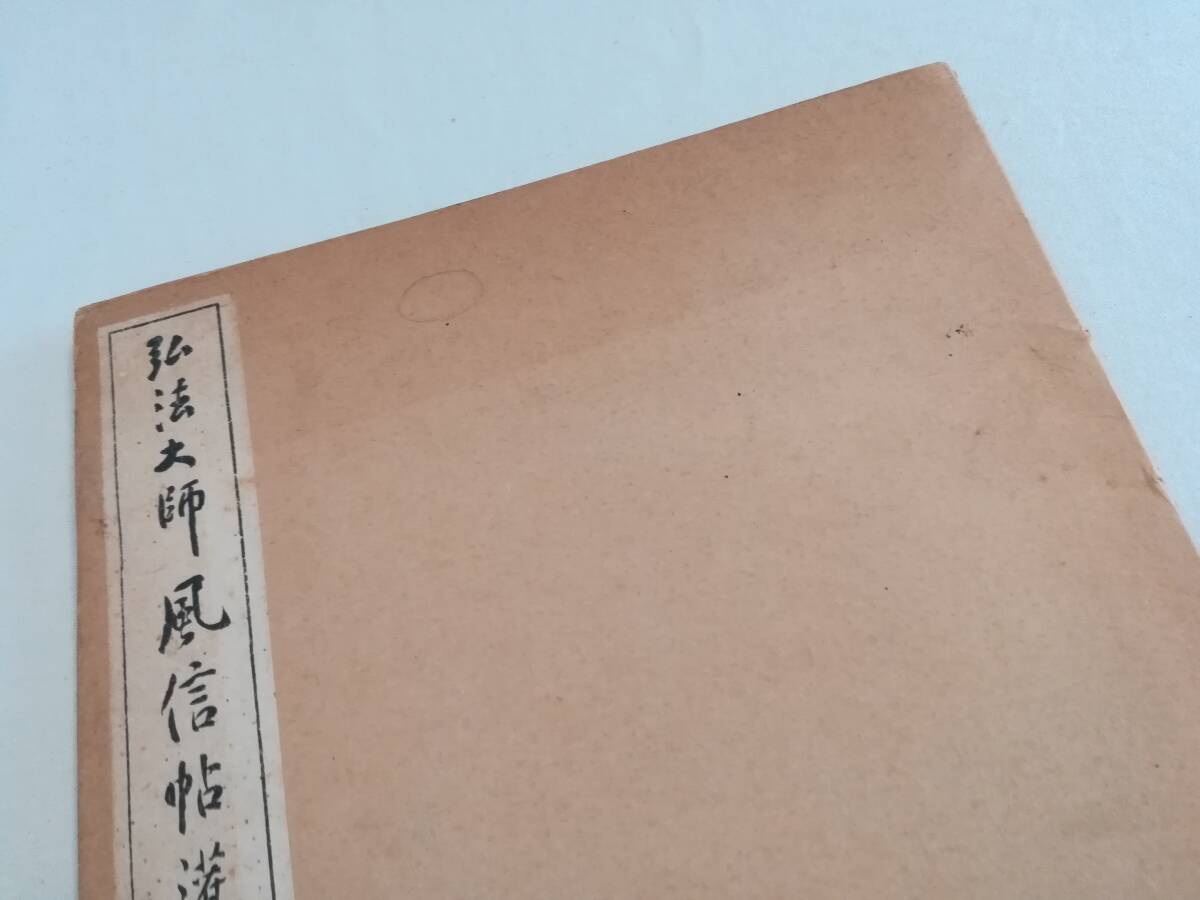 弘法大師風信帖灌